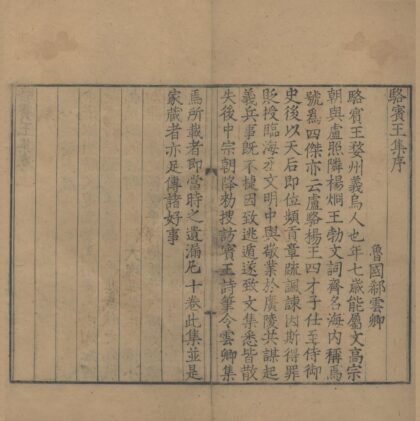 駱賓王集序
魯國郗雲卿
駱賓王婺州義烏人也年七歲能屬文高宗
朝與盧照隣楊烱王勃文詞齊名海內稱焉
號爲四傑亦云盧駱楊王四才子仕至侍御
史後以天后即位頻貢章疏諷諫因斯得罪
貶授臨海丞文明中與敬業於廣陵共謀起
義兵事旣不捷因致逃遁遂致文集悉皆散
失後中宗朝降勑搜訪賓王詩筆令雲卿集
焉所載者即當時之遺漏凡十卷此集並是
家藏者亦足傳諸好事